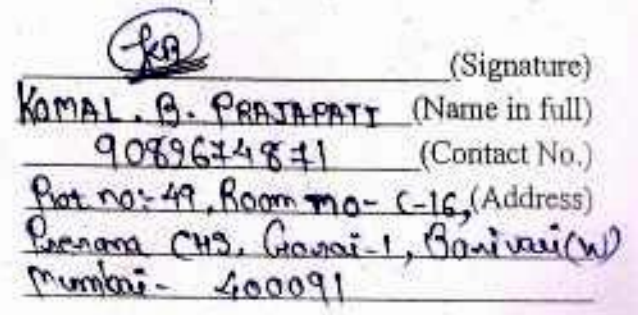 (Signature)
KOMAL. B. PRAJAPATI (Name in full)
9089674871 (Contact No.)
Plot no:- 49, Room no- C-16, (Address)
Prerana CHS, Gorai-1, Borivali(W)
Mumbai- 400091